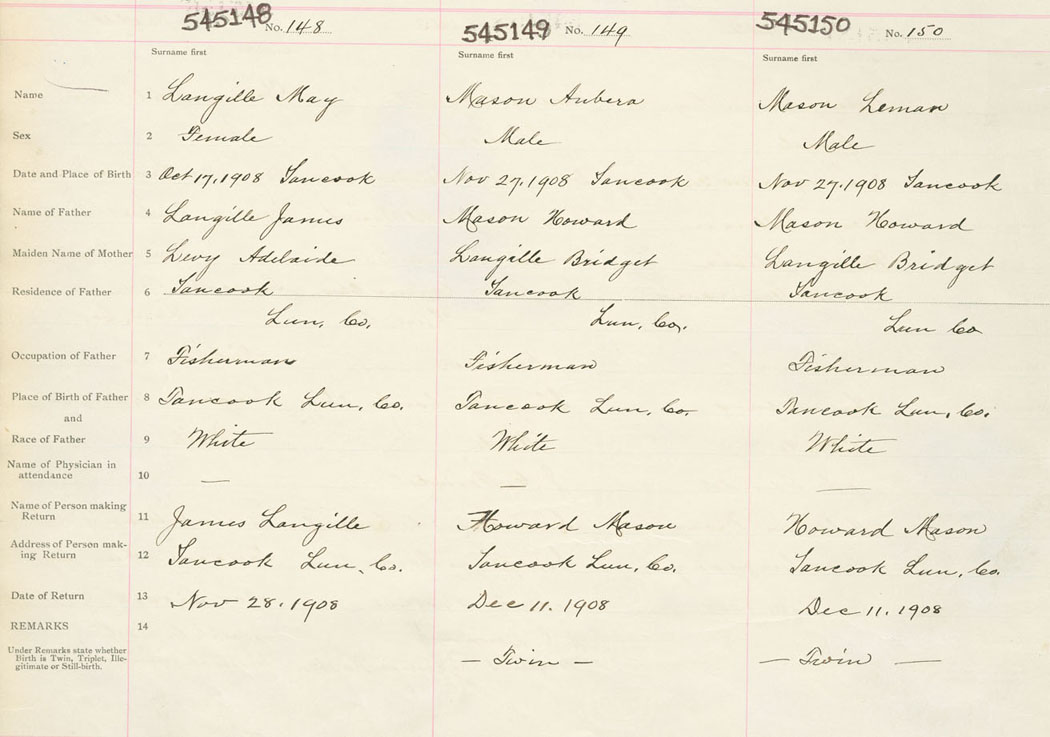 545148 No. 148 545149 No. 149 545150 No. 150
Surname first Surname first Surname first
Name 1 Langille May Mason Aubera Mason Leman
Sex 2 Female Male Male
Date and Place of Birth 3 Oct 17, 1908 Tancook Nov 27, 1908 Tancook Nov 27, 1908 Tancook
Name of Father 4 Langille James Mason Howard Mason Howard
Maiden Name of Mother 5 Levy Adelaide Langille Bridget Langille Bridget
Residence of Father 6 Tancook Tancook Tancook
Lun, Co. Lun, Co. Lun Co
Occupation of Father 7 Fisherman Fisherman Fisherman
Place of Birth of Father 8 Tancook Lun, Co. Tancook Lun, Co. Tancook Lun, Co.
and
Race of Father 9 White White White
Name of Physician in
attendance 10 — — —
Name of Person making
Return 11 James Langille Howard Mason Howard Mason
Address of Person mak-
ing Return 12 Tancook Lun, Co. Tancook Lun, Co. Tancook Lun, Co.
Date of Return 13 Nov 28. 1908 Dec 11. 1908 Dec 11. 1908
REMARKS 14
Under Remarks state whether
Birth is Twin, Triplet, Ille-
gitimate or Still-birth. — Twin — — Twin —